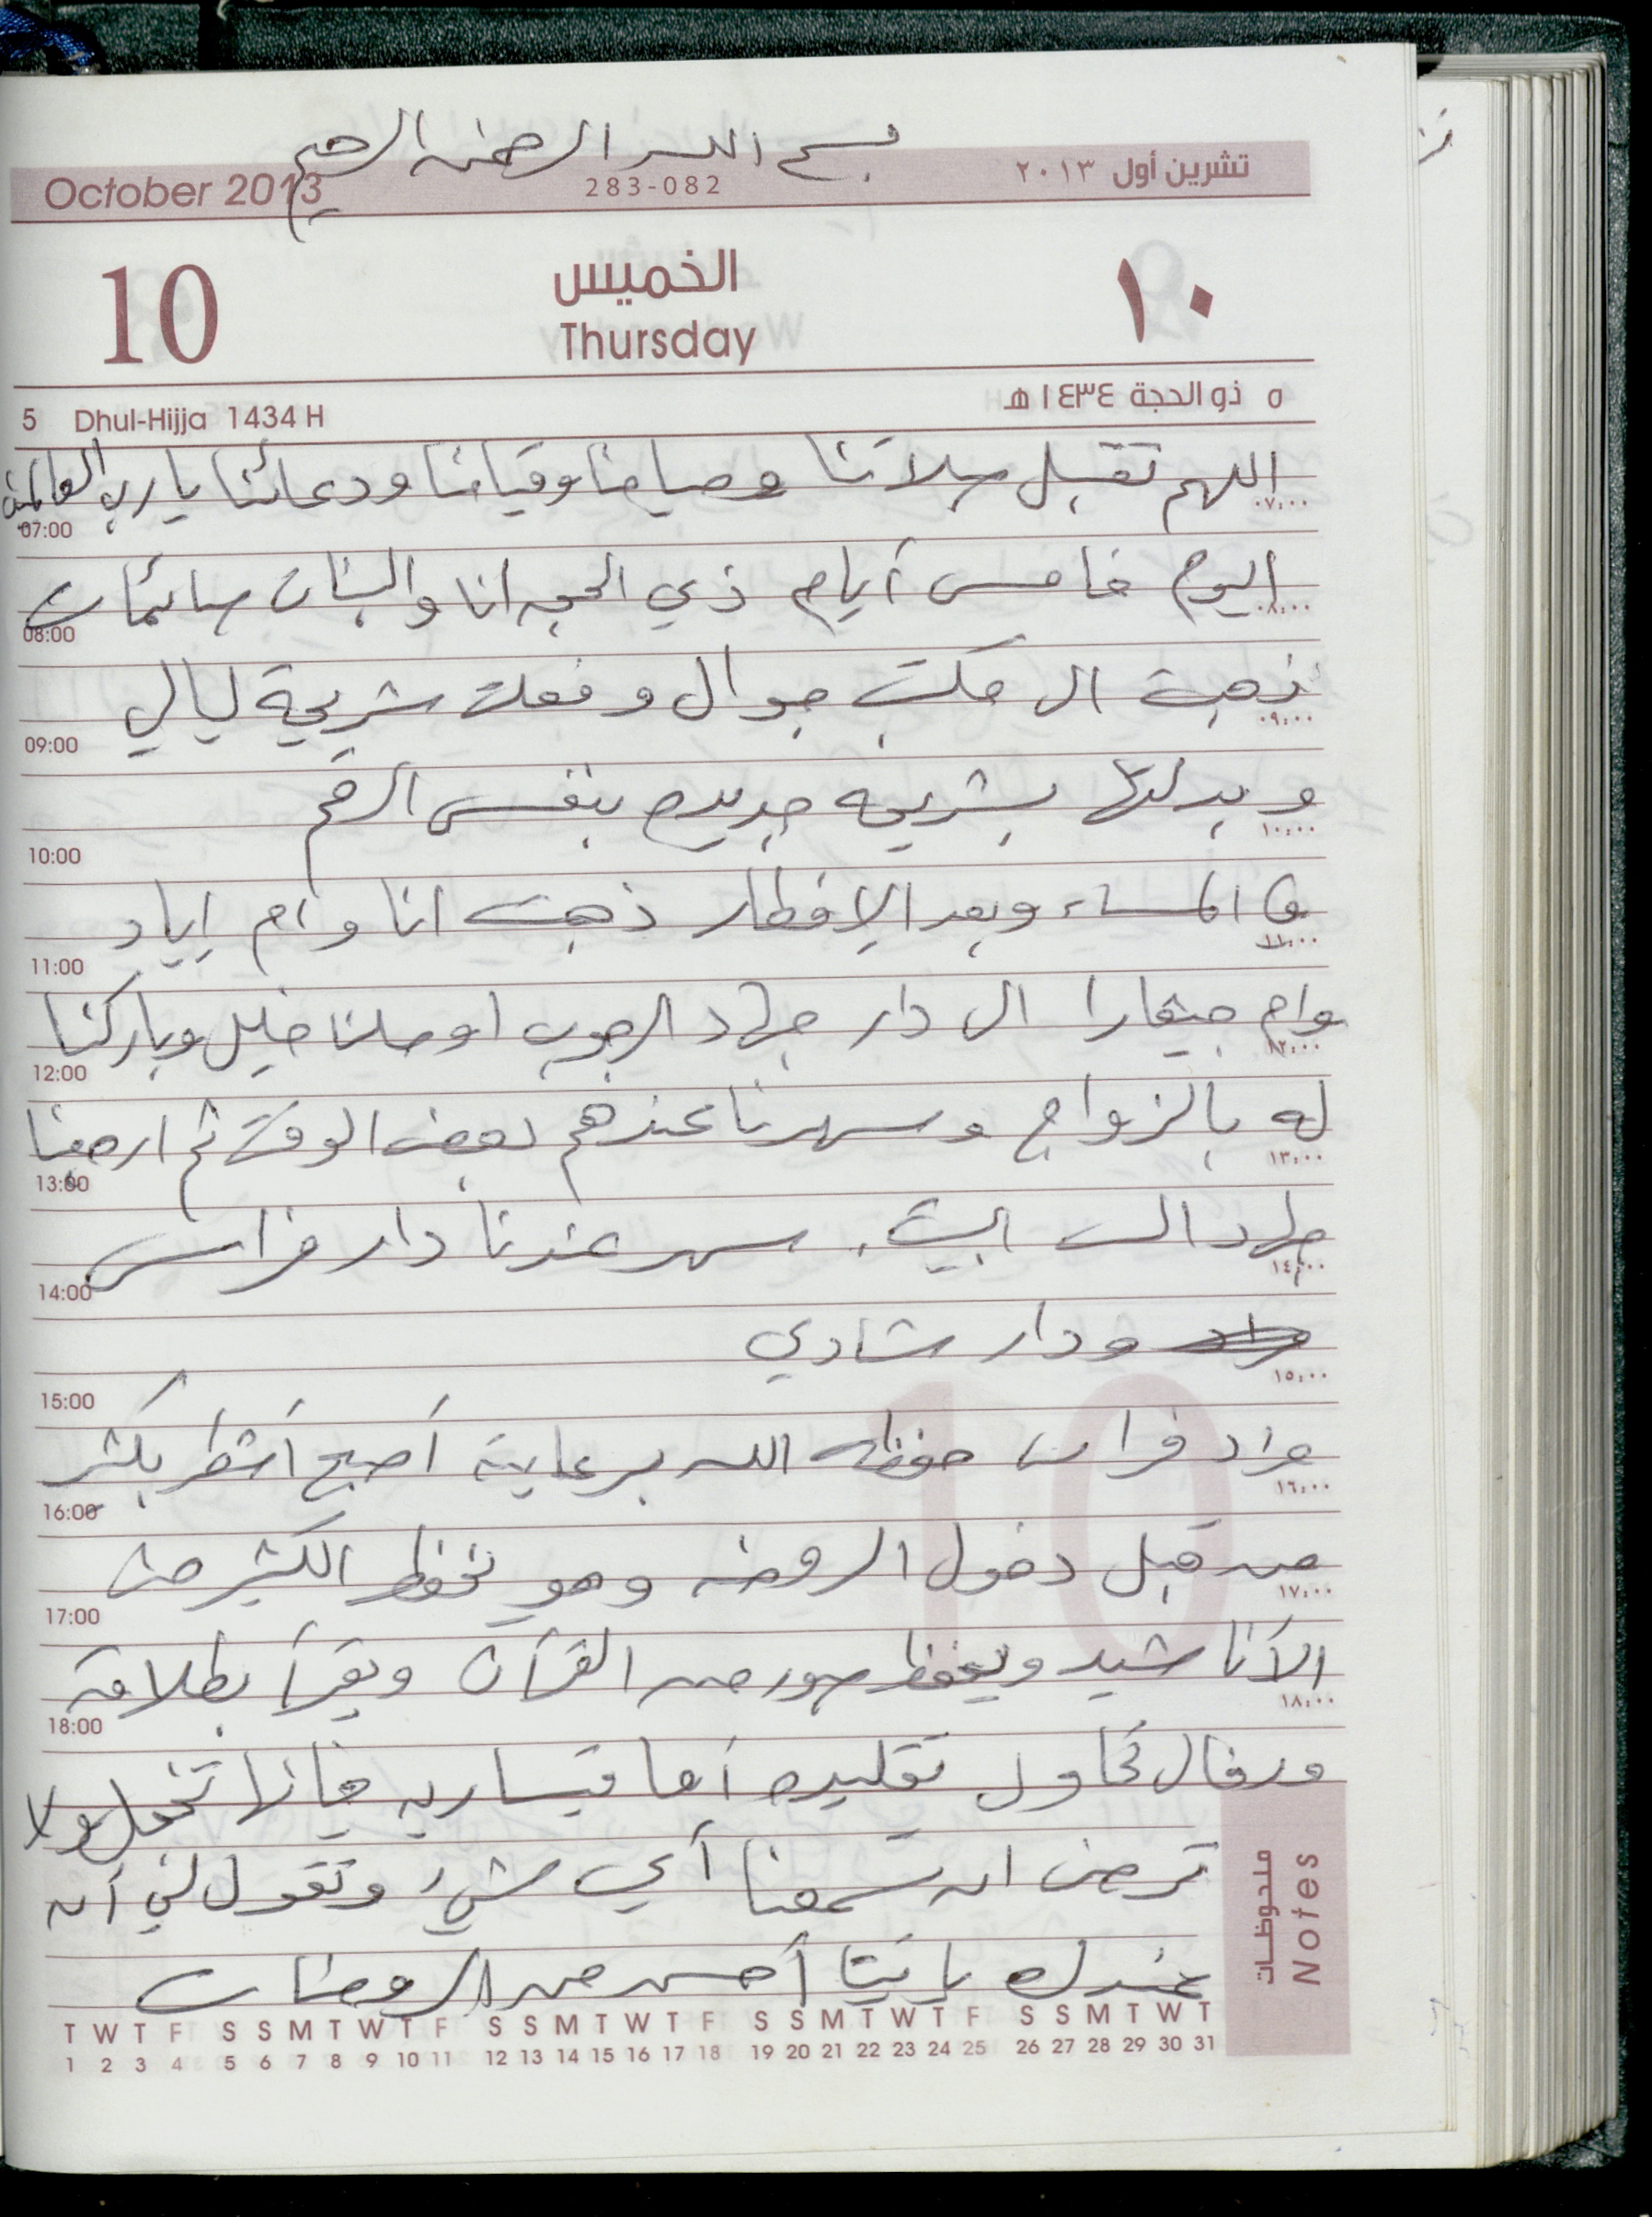 بسم الله الرحمن الرحيم
October 2013 283-082 تشرين أول ٢٠١٣
10 الخميس ١٠
Thursday
5 Dhul-Hijja 1434 H ٥ ذو الحجة ١٤٣٤ هـ
اللهم تقبل صلاتنا وصيامنا وقيامنا ودعائنا يا رب العالمين
07:00 ٠٧:٠٠
اليوم خامس أيام ذي الحجه انا والبنات صائمات
08:00 ٠٨:٠٠
ذهبت الى مكتب جوال وفعلت شريحة ليالي
09:00 ٠٩:٠٠
وبدلتها بشريحه جديده بنفس الرقم
10:00 ١٠:٠٠
في المساء وبعد الإفطار ذهبت انا وام إياد
11:00 ١١:٠٠
وام جيفارا الى دار جهاد الرجوب اوصلنا خليل وباركنا
12:00 ١٢:٠٠
له بالزواج وسهرنا عندهم بعض الوقت ثم ارجعنا
13:00 ١٣:٠٠
جهاد الى البيت. سهر عندنا دار فراس
14:00 ١٤:٠٠
ودار شادي
15:00 ١٥:٠٠
فراس حفظه الله برعايته أصبح أشطر بكثير
16:00 ١٦:٠٠
من قبل دخول الروضه وهو يحفظ الكثير من
17:00 ١٧:٠٠
الأناشيد ويحفظ سور من القرآن ويقرأ بطلاقه
18:00 ١٨:٠٠
تحاول تقليده أما قيساريه فإنها تخجل ولا
ترضى ان تسمعنا أي شيء وتقول لي أن
عندك يا تيتا أحسن من الروضات
ملحوظات
Notes
T W T F S S M T W T F S S M T W T F S S M T W T F S S M T W T
1 2 3 4 5 6 7 8 9 10 11 12 13 14 15 16 17 18 19 20 21 22 23 24 25 26 27 28 29 30 31